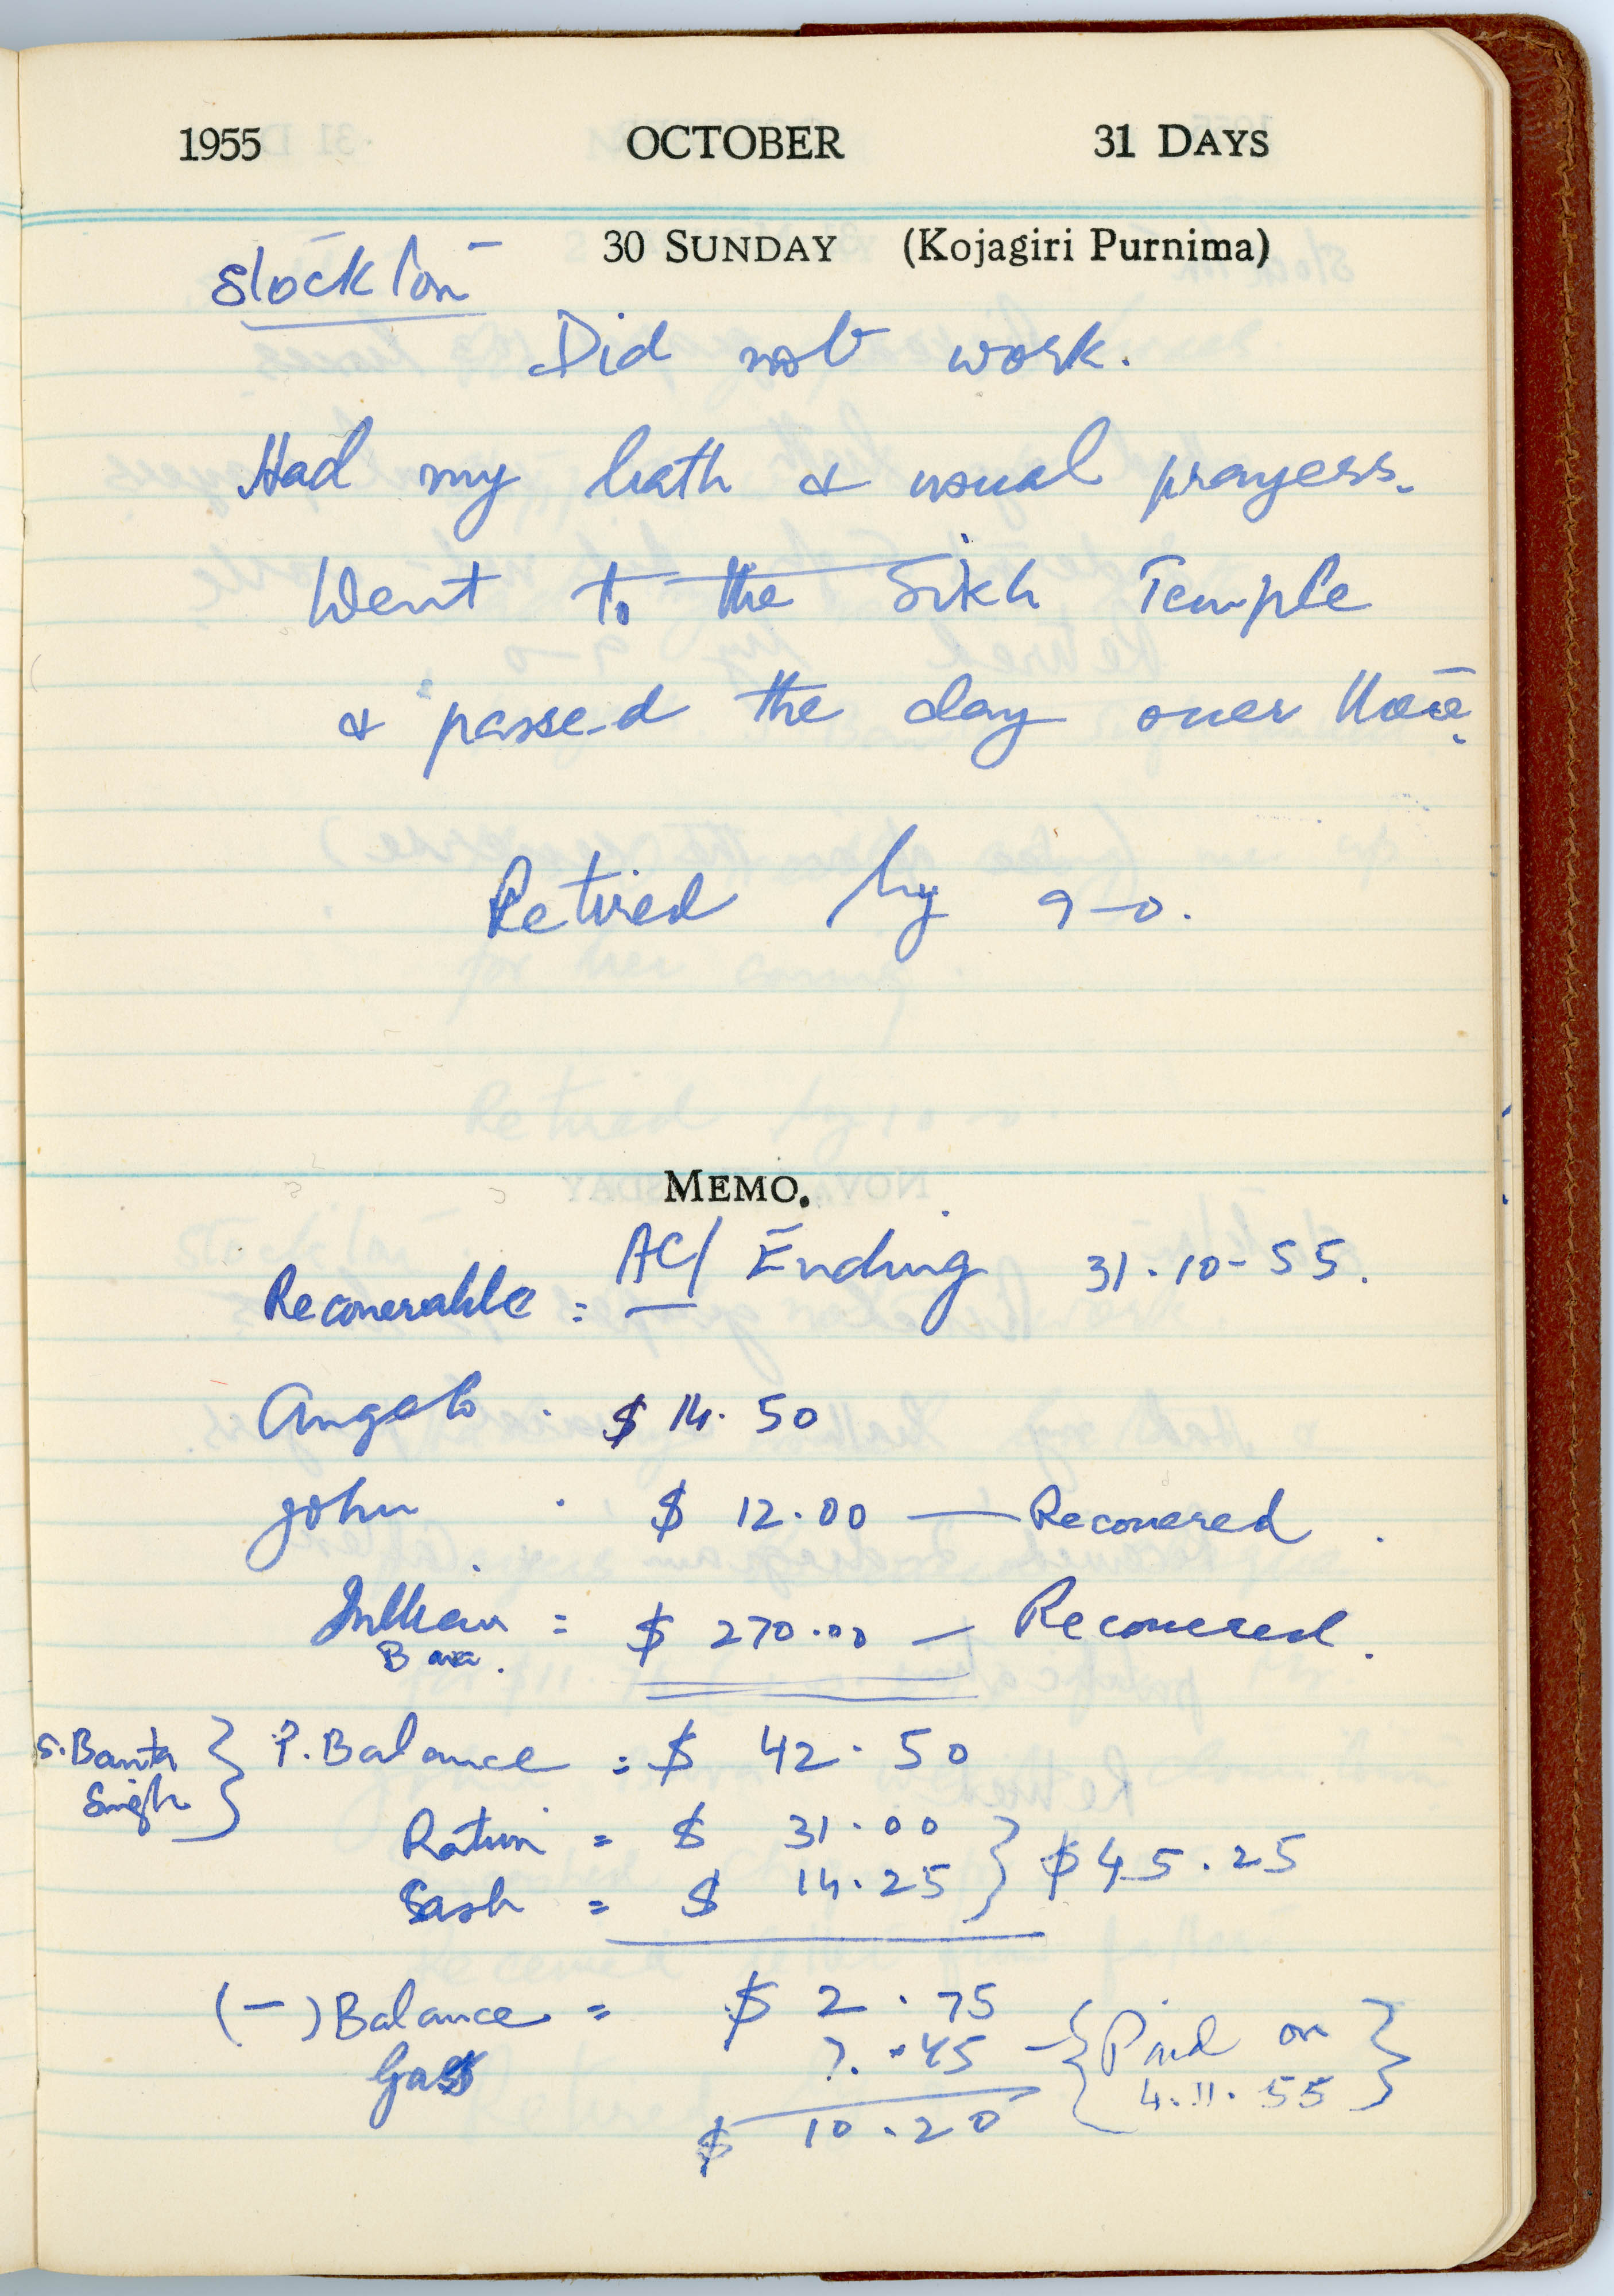 1955 OCTOBER 31 DAYS
30 SUNDAY (Kojagiri Purnima)
Stockton
Did not work.
Had my bath & usual prayers.
Went to the Sikh Temple
& passed the day over there.
Retired by 9-0.
MEMO.
AC/ Ending 31.10-55.
Recoverable =
Angelo . $ 14.50
John . $ 12.00 — Recovered.
= $ 270.00 — Recovered.
Bava.
S. Banta Singh } P. Balance = $ 42.50
Ration = $ 31.00
Cash = $ 14.25 } $45.25
(-) Balance = $ 2.75
Gas 7.45 — { Paid on 4.11.55 }
$ 10.20